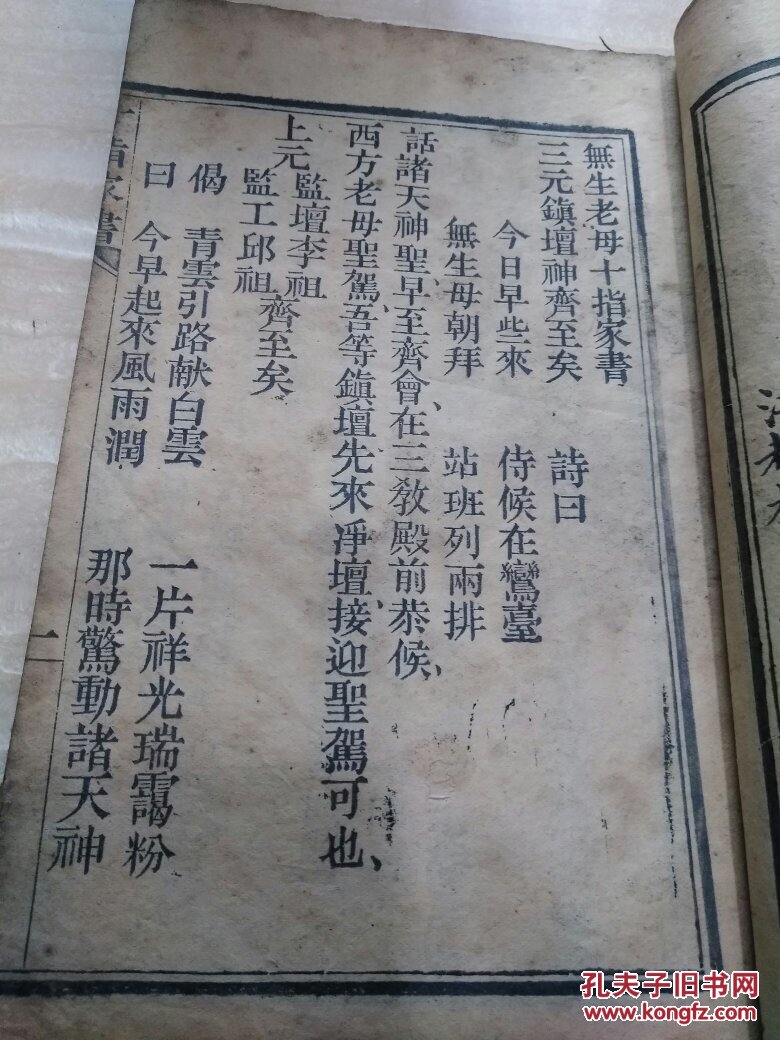 無生老母十指家書
三元鎮壇神齊至矣　詩曰
今日早些來　侍候在鸞臺
無生母朝拜　站班列兩排
話諸天神聖、早至齊會在三教殿前恭候、
西方老母聖駕、吾等鎮壇先來凈壇、接迎聖駕可也、
上元監壇李祖
監工邱祖齊至矣
偈　青雲引路献白雲　一片祥光瑞靄粉
曰　今早起來風雨潤　那時驚動諸天神
十指家書　二
孔夫子旧书网
www.kongfz.com